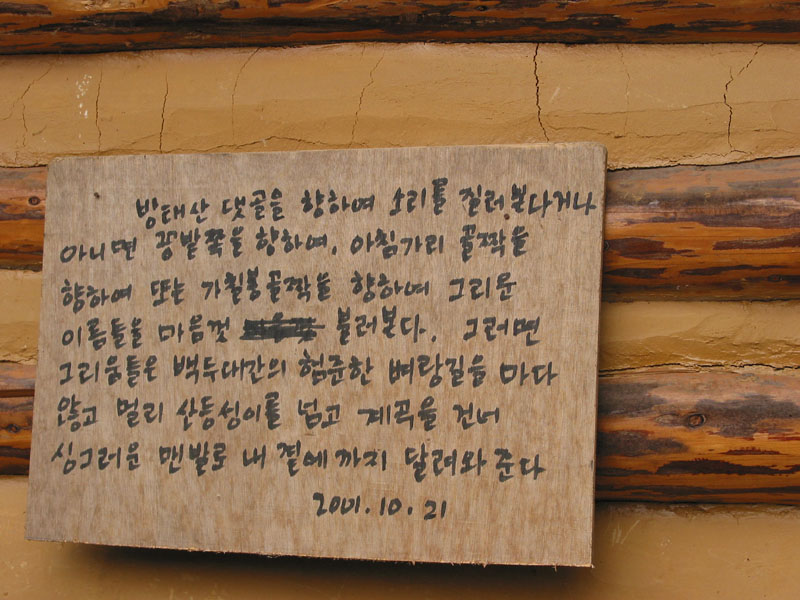 방태산 댓골을 향하여 소리를 질러본다거나
아니면 꽁밭쪽을 향하여, 아침가리 골짝을
향하여 또는 가칠봉골짝을 향하여 그리운
이름들을 마음껏 불러본다. 그러면
그리움들은 백두대간의 험준한 벼랑길을 마다
않고 멀리 산등성이를 넘고 계곡을 건너
싱그러운 맨발로 내 곁에까지 달려와 준다
2001.10.21